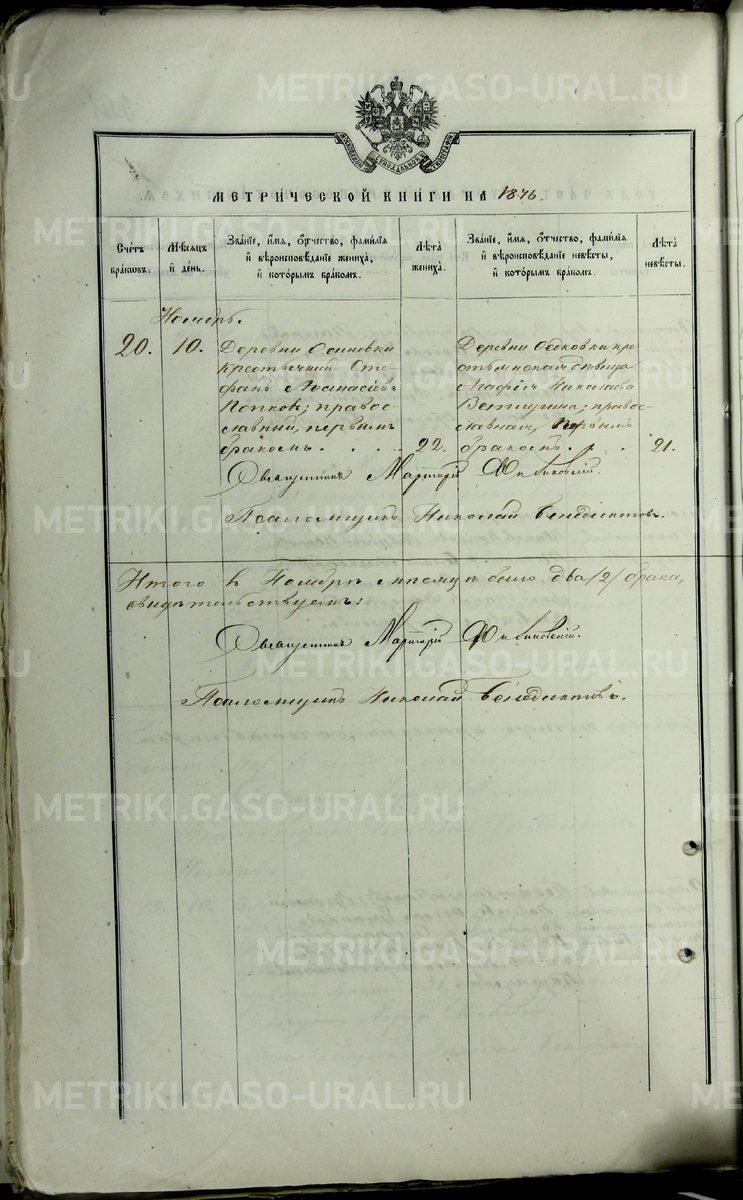 METRIKI.GASO-URAL.RU
МОСКОВСКОЙ СѴНОДАЛЬНОЙ ТИПОГРАФІИ
МЕТРИЧЕСКОЙ КНИГИ НА 1876.
Счетъ браковъ.
Мѣсяцъ и день.
Званіе, имя, отчество, фамилія и вѣроисповѣданіе жениха, и которымъ бракомъ.
Лѣта жениха.
Званіе, имя, отчество, фамилія и вѣроисповѣданіе невѣсты, и которымъ бракомъ.
Лѣта невѣсты.
Ноябрь.
20. 10.
Деревни Осиновки
крестьянинъ Сте-
фанъ Аѳанасіевъ
Попковъ; право-
славный, первымъ
бракомъ . . . 22.
Деревни кре-
стьянская дѣвица
Агафія Николаева
Ветлугина; право-
славная, первымъ
бракомъ . . . 21.
Священникъ
Псаломщикъ Николай Бенедиктовъ.
Итого въ Ноябрѣ мѣсяцѣ было два /2/ брака,
свидѣтельствуемъ:
Священникъ
Псаломщикъ Николай Бенедиктовъ.